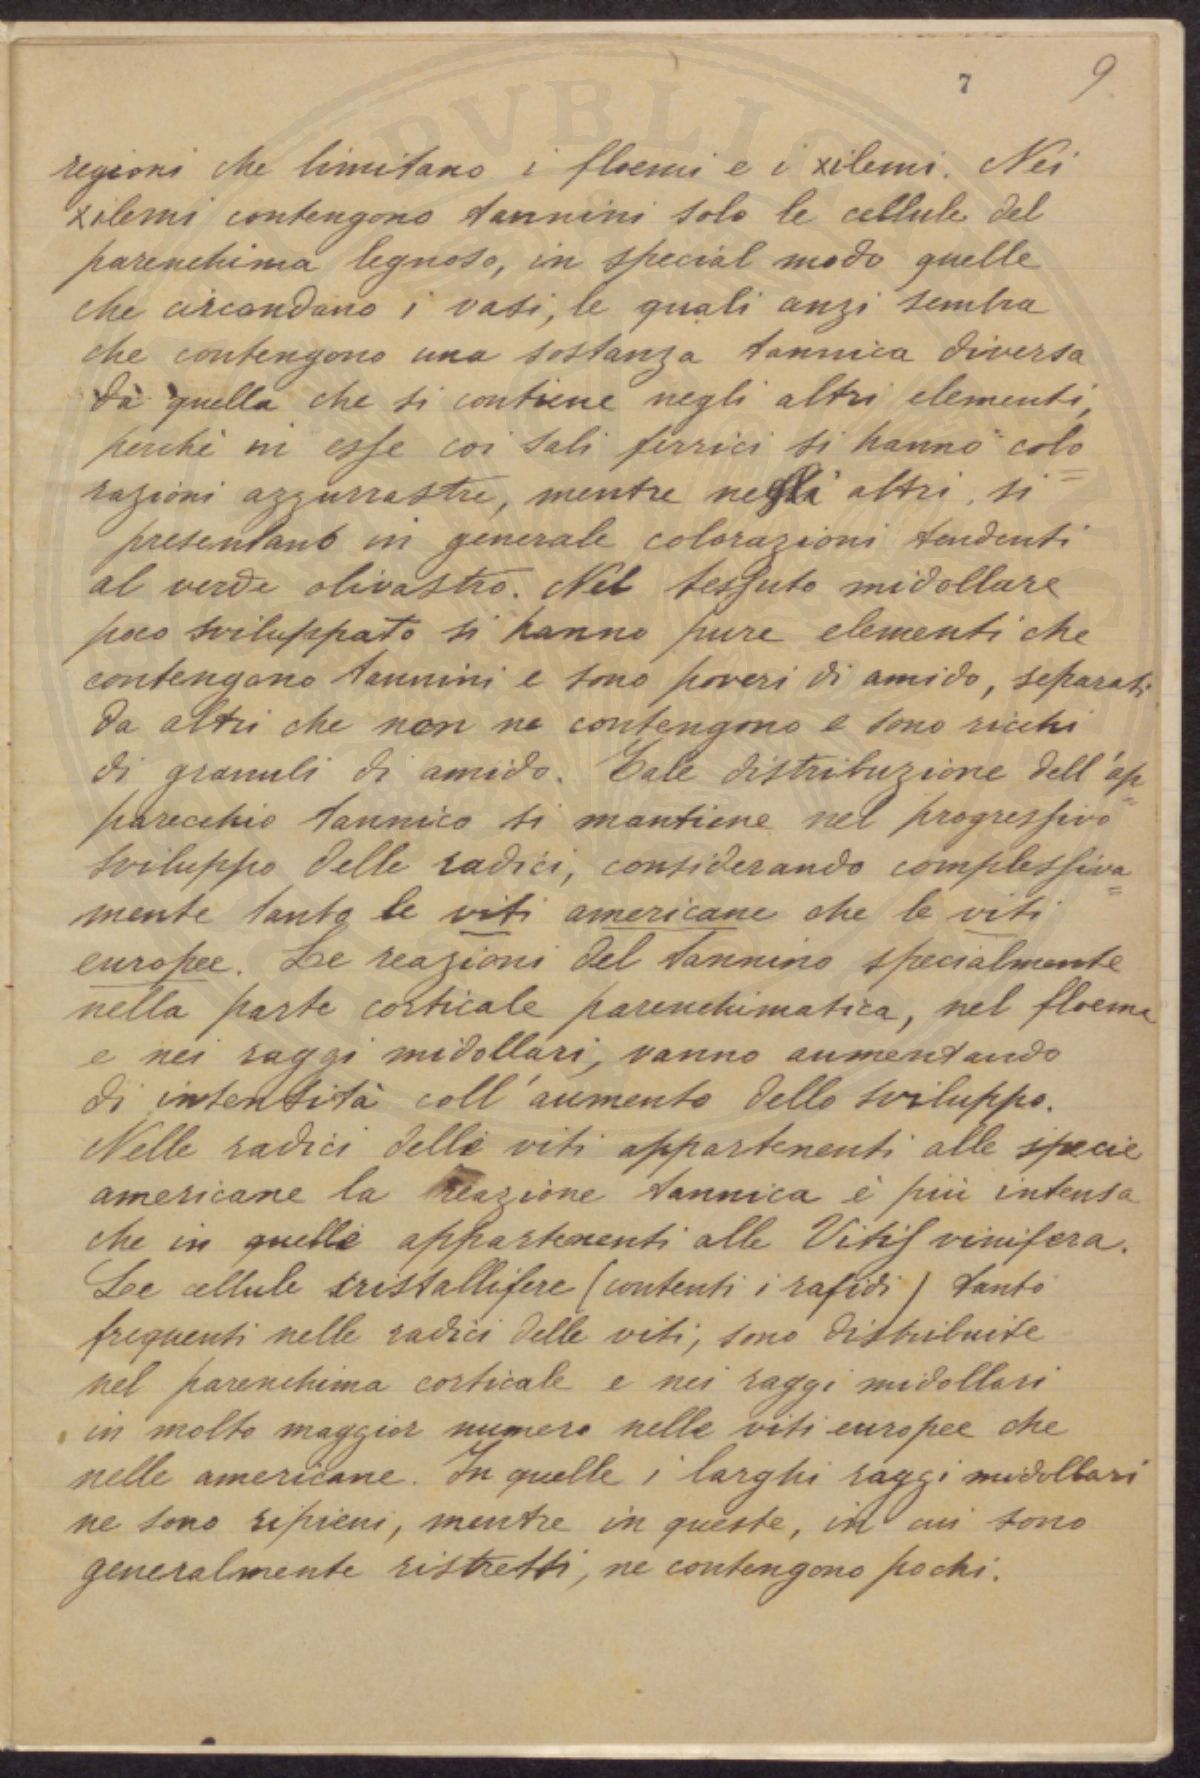 7 9
regioni che limitano i floemi e i xilemi. Nei
xilemi contengono tannini solo le cellule del
parenchima legnoso, in special modo quelle
che circondano i vasi, le quali anzi sembra
che contengono una sostanza tannica diversa
da quella che si contiene negli altri elementi,
perchè in esse coi sali ferrici si hanno colo
razioni azzurrastre, mentre negli altri, si
presentano in generale colorazioni tendenti
al verde olivastro. Nel tessuto midollare
poco sviluppato si hanno pure elementi che
contengono tannini e sono poveri di amido, separati
da altri che non ne contengono e sono ricchi
di granuli di amido. Tale distribuzione dell'ap=
parecchio tannico si mantiene nel progressivo
sviluppo delle radici, considerando complessiva=
mente tanto le viti americane che le viti
europee. Le reazioni del tannino specialmente
nella parte corticale parenchimatica, nel floema
e nei raggi midollari, vanno aumentando
di intensità coll'aumento dello sviluppo.
Nelle radici delle viti appartenenti alle specie
americane la reazione tannica è più intensa
che in quelle appartenenti alle Vitis vinifera.
Le cellule cristallifere (contenti i rafidi) tanto
frequenti nelle radici delle viti, sono distribuite
nel parenchima corticale e nei raggi midollari
in molto maggior numero nelle viti europee che
nelle americane. In quelle i larghi raggi midollari
ne sono ripieni, mentre in queste, in cui sono
generalmente ristretti, ne contengono pochi.
PVBLIC